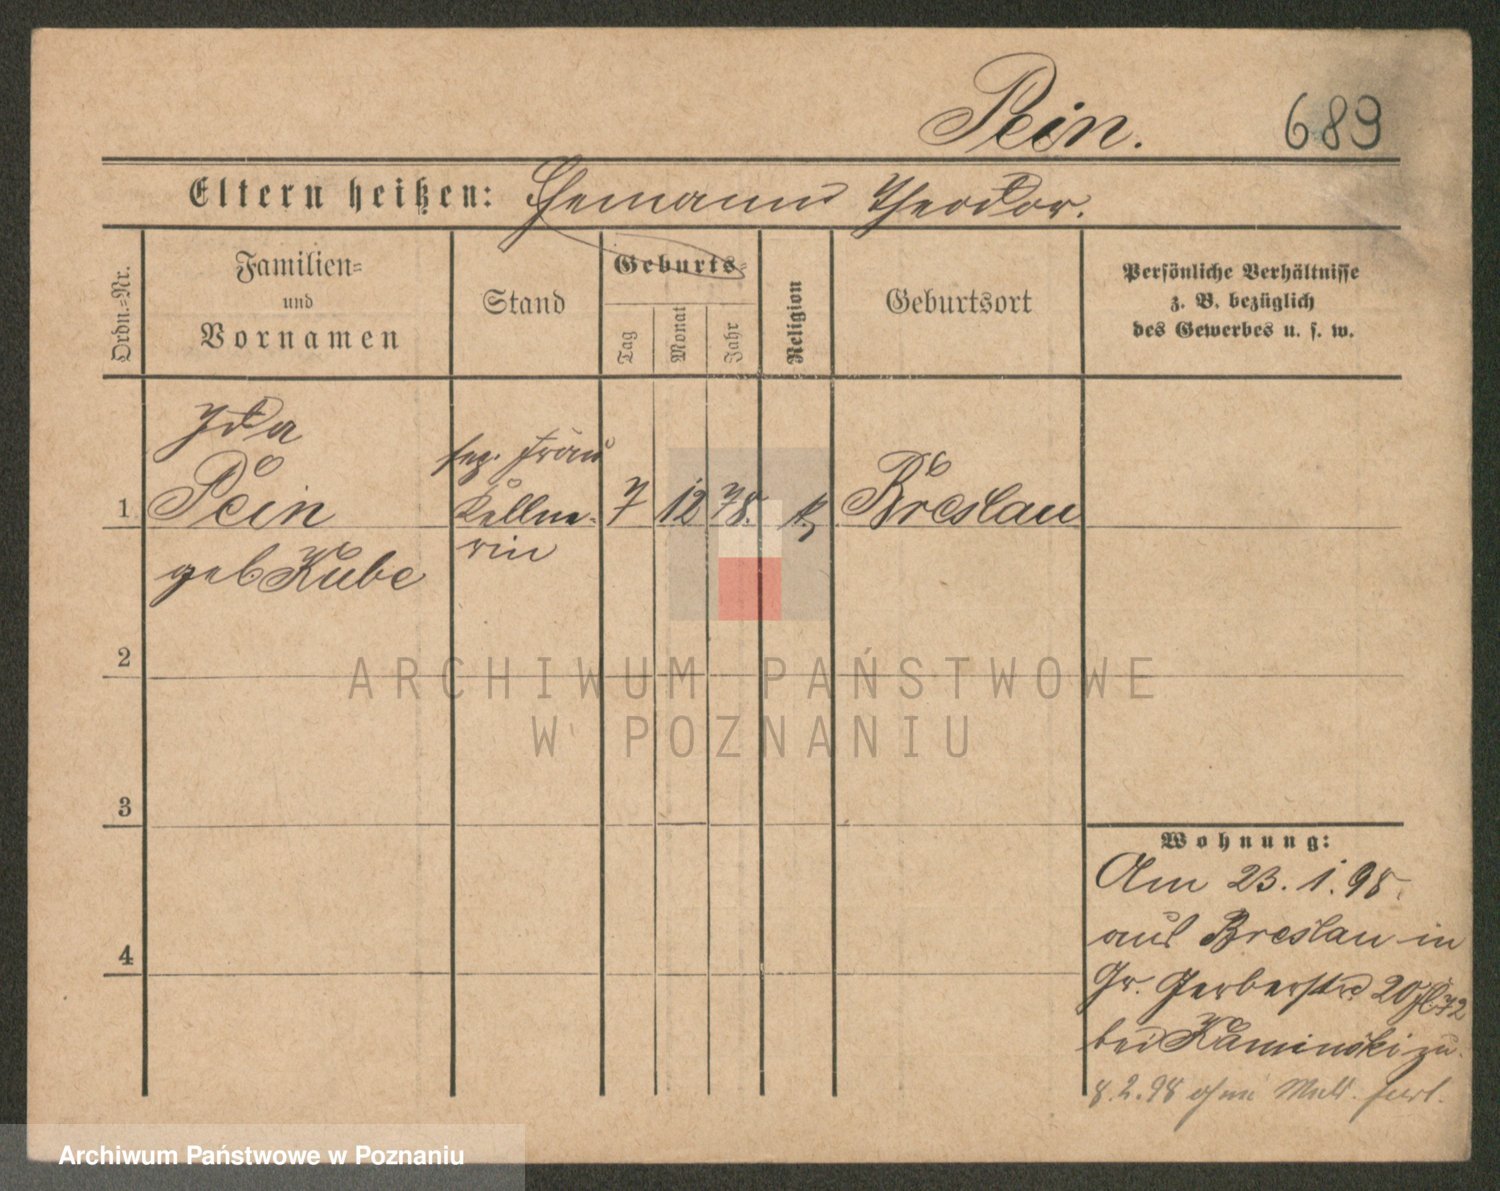 Pein. 689
Eltern heißen: Ehemann Theodor.
Ordn.=Nr.
Familien=
und
Vornamen
Stand
Geburts=
Tag
Monat
Jahr
Religion
Geburtsort
Persönliche Verhältnisse
z. B. bezüglich
des Gewerbes u. s. w.
Ida
sep. Frau
1 Pein Kellne- 7 12 78. k Breslau
rin
geb Kube
2
3
4
Wohnung:
Am 23. 1. 98.
aus Breslau in
Gr. Gerberstr. 20
bei Kaminski zu.
8.2.98 ohne
ARCHIWUM PAŃSTWOWE
W POZNANIU
Archiwum Państwowe w Poznaniu